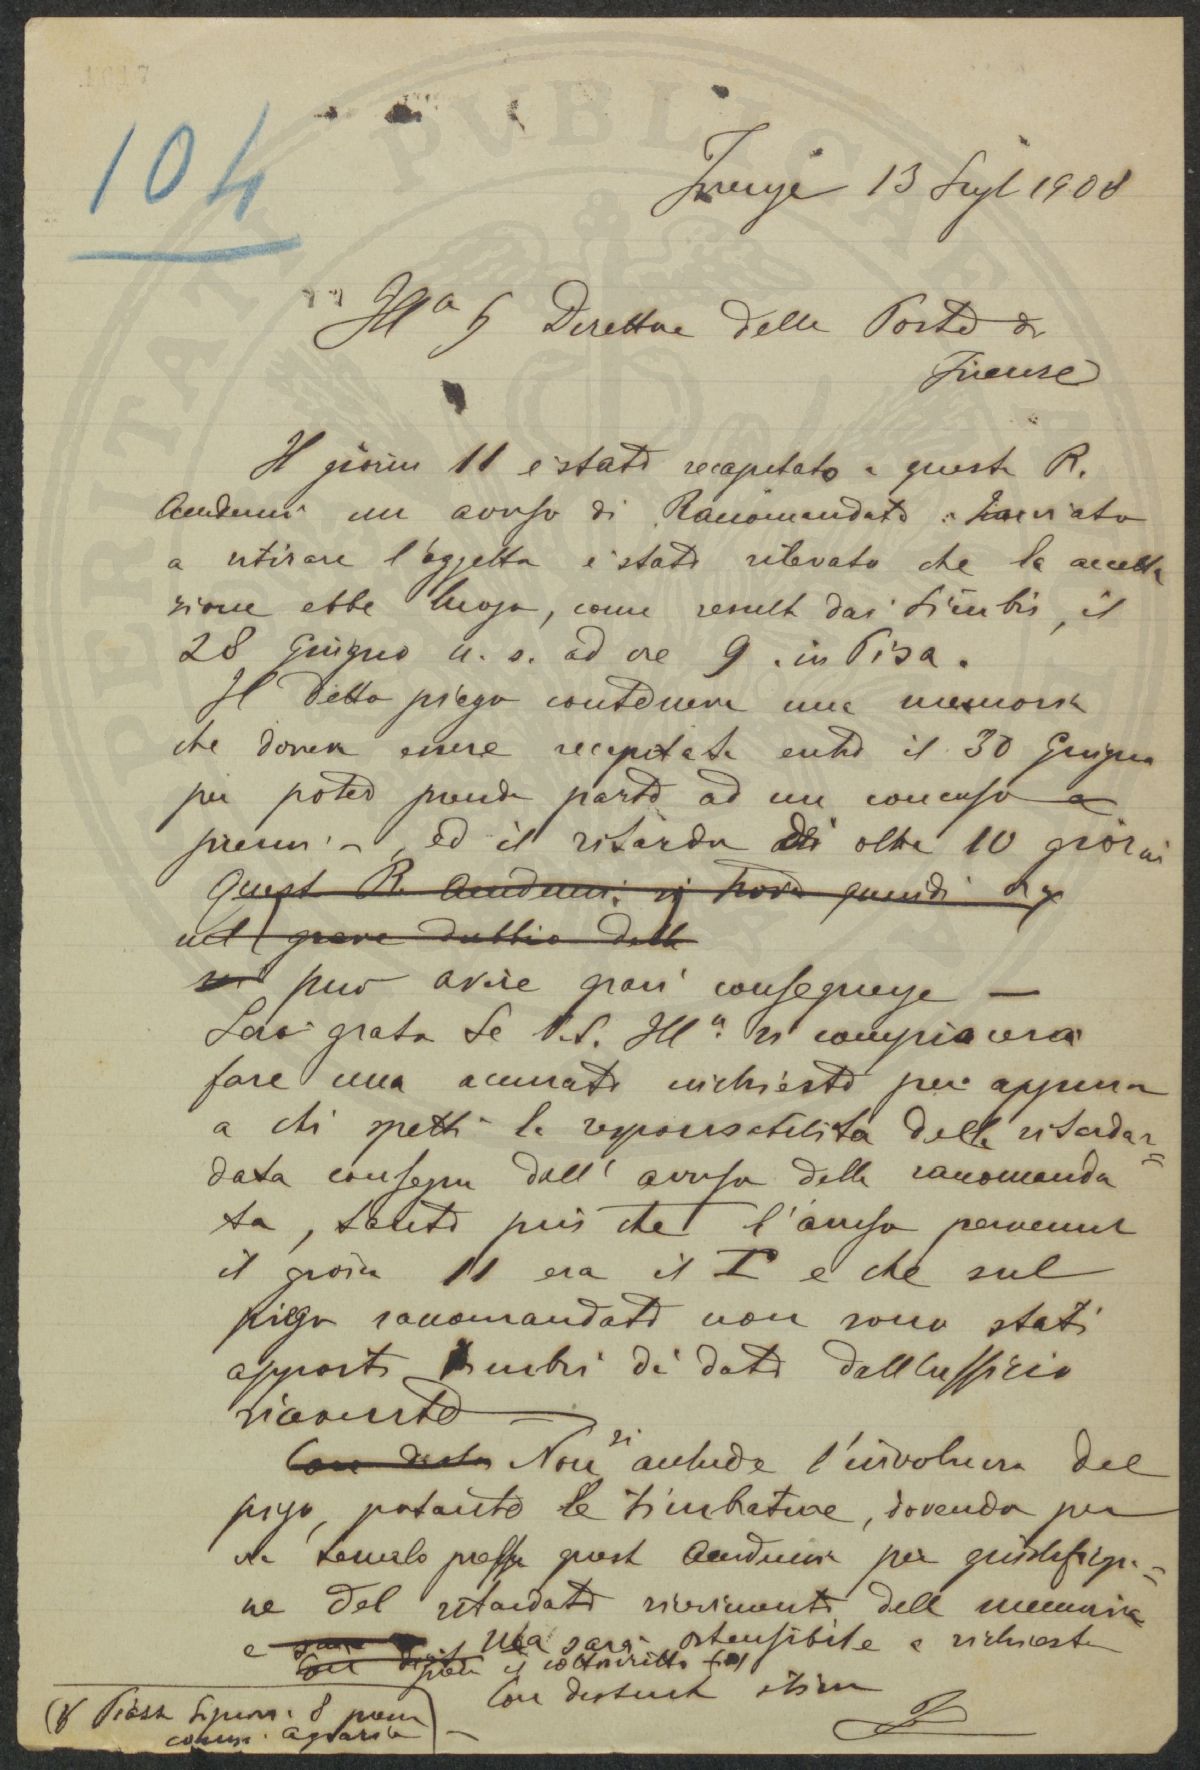 104
Firenze 13 Lugl 1908
Ill.a S Direttore delle Poste di
Firenze
Il giorno 11 è stato recapitato a questa R.
Accademia un avviso di Raccomandata. Inviato
a ritirare l'oggetto è stato rilevato che la accetta
zione ebbe luogo, come result dai timbri, il
28 Giugno u. s. ad ore 9. in Pisa.
Il detto piego conteneva una memoria
che doveva essere recapitata entro il 30 Giugno
per poter prender parte ad un concorso a
premi, ed il ritardo di oltre 10 giorni
Questa R. Accademia si trova quindi
nel grave dubbio della
può avere gravi conseguenze —
Sarò grato se V.S. Ill.a si compiacerà
fare una accurata inchiesta per appurare
a chi spetti la responsabilità della ritardar=
data consegna dell' avviso della raccomanda
ta, tanto più che l'avviso pervenuto
il giorno 11 era il I° e che sul
piego raccomandato non sono stati
apposti timbri di data dall'ufficio
ricevente
Non si acclude l'involucro del
piego, portante le timbrature, dovendo per
ora tenerlo presso questa Accademia per giustificazio=
ne del ritardato ricevimento della memoria
e ma sarà ostensibile a richiesta
presso il sottoscritto (x)
Con distinta stima
(x Piazza Signoria 8 presso
comizio agrario)